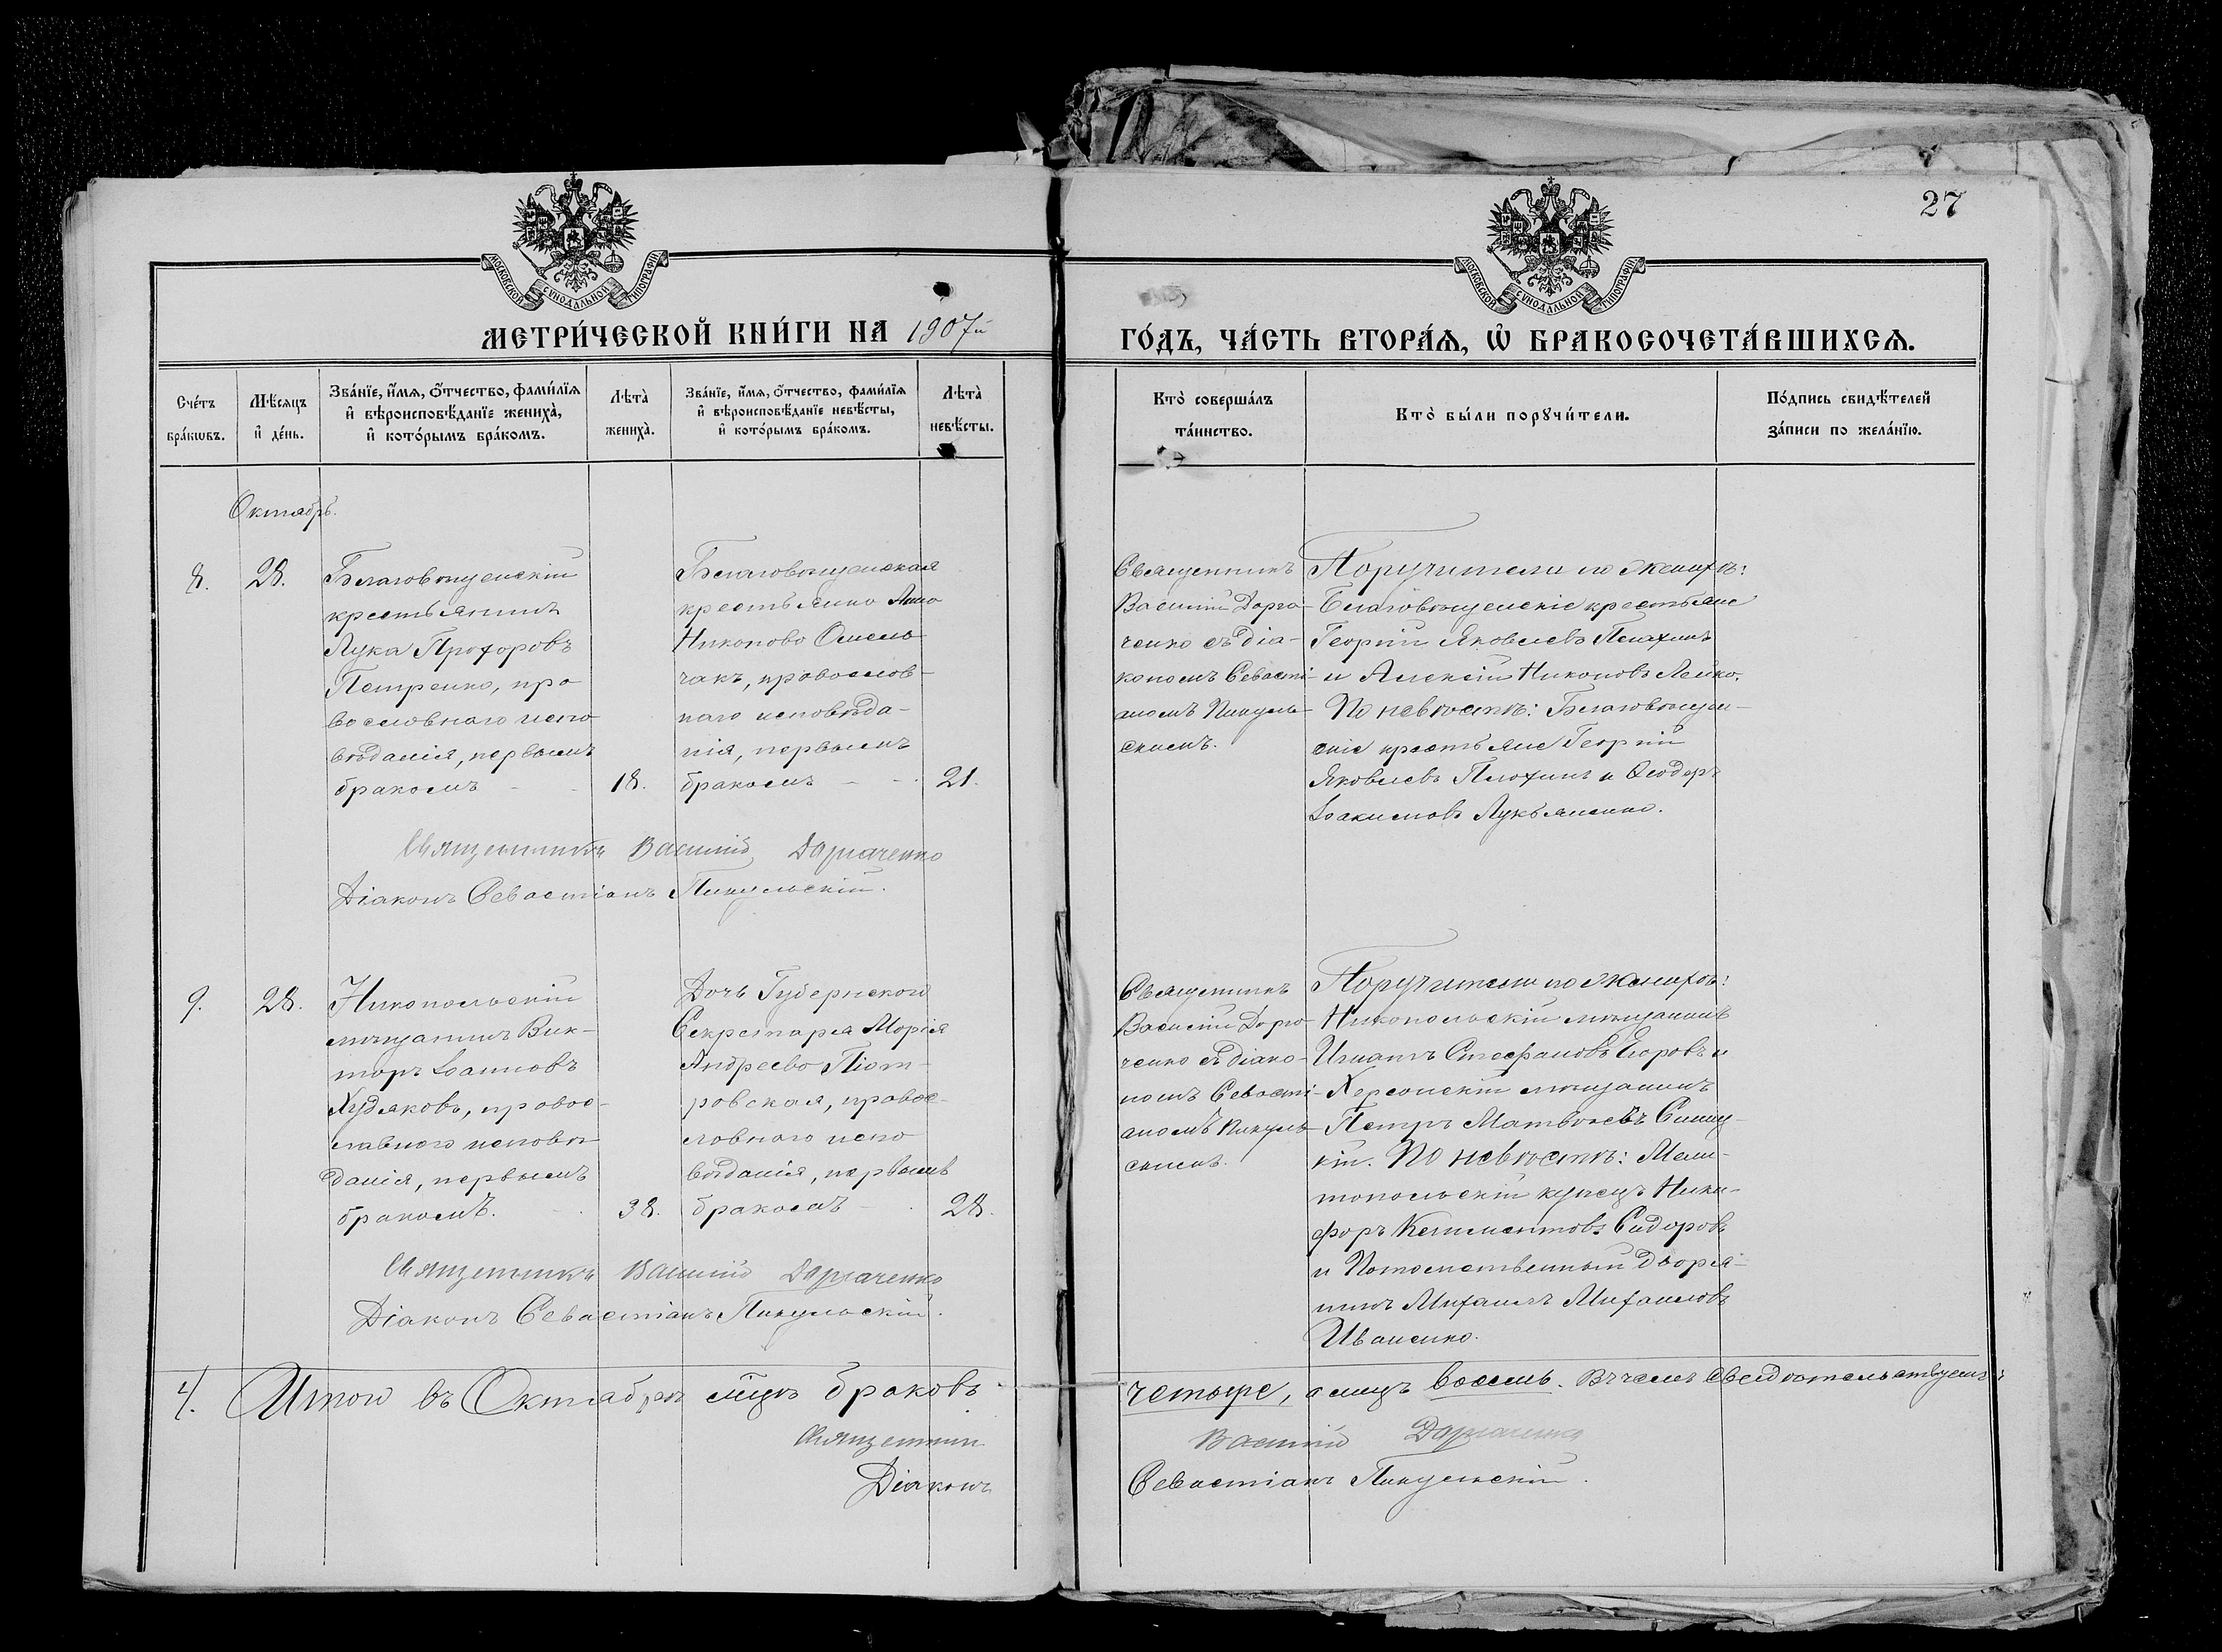 27
МОСКОВСКОЙ СѴНОДАЛЬНОЙ ТИПОГРАФІИ
МОСКОВСКОЙ СѴНОДАЛЬНОЙ ТИПОГРАФІИ
МЕТРИ́ЧЕСКОЙ КНИ́ГИ НА 1907й
ГО́ДЪ, ЧА́СТЬ ВТОРА́Ѧ, Ѡ҆ БРАКОСОЧЕТА́ВШИХСѦ.
Сче́тъ
бра́кѡвъ.
Мѣ́сяцъ
и҆ де́нь.
Зва́нїе, и҆́мѧ, ѻ҆́тчество, фами́лїѧ
и҆ вѣроисповѣ́данїе жениха̀,
и҆ кото́рымъ бра́комъ.
Лѣта̀
жениха̀.
Зва́нїе, и҆́мѧ, ѻ҆́тчество, фами́лїѧ
и҆ вѣроисповѣ́данїе невѣ́сты,
и҆ кото́рымъ бра́комъ.
Лѣта̀
невѣ́сты.
Кто̀ соверша́лъ
та́инство.
Кто̀ бы́ли порꙋчи́тели.
По́дпись свидѣ́телей
за́писи по жела́нїю.
Октябрь.
8.
28.
Благовѣщенскій
крестьянинъ
Лука Прохоровъ
Петренко, пра
вославнаго испо
вѣданія, первымъ
бракомъ
18.
Благовѣщенская
крестьянка Анна
Никонова Омель
чакъ, православ-
наго исповѣда-
нія, первымъ
бракомъ
21.
Священникъ
Василій Дарга
ченко съ діа-
кономъ Севасті-
аномъ Пикуль
скимъ.
Поручители по женихѣ:
Благовѣщенскіе крестьяне
Георгій Яковлевъ
и Алексій Никоновъ
По невѣстѣ: Благовѣщен-
скіе крестьяне Георгій
Яковлевъ и Ѳеодоръ
Іоакимовъ Лукьяненко.
Священникъ Василій Даргаченко
Діаконъ Севастіанъ Пикульскій.
9.
28.
Никопольскій
мѣщанинъ Вик-
торъ Іоанновъ
Худяковъ, правос-
лавнаго исповѣ
данія, первымъ
бракомъ.
38.
Дочь Губернскаго
Секретаря Марія
Андреева Піот-
ровская, правос-
лавнаго испо
вѣданія, первымъ
бракомъ
28.
Священникъ
Василій Дарга
ченко съ діако-
номъ Севасті-
аномъ Пикуль
скимъ.
Поручители по женихѣ:
Никопольскій мѣщанинъ
Игнатъ Стефановъ Егоровъ и
Херсонскій мѣщанинъ
Петръ Матвѣевъ
кій. По невѣстѣ: Мели-
топольскій купецъ Ники-
форъ Климентовъ Сидоровъ
и Потомственный дворя-
нинъ Михаилъ Михаиловъ
Иваненко.
Священникъ Василій Даргаченко
Діаконъ Севастіанъ Пикульскій.
4. Итого въ Октябрѣ мцѣ браковъ
четыре, а лицъ восемь. Въ чемъ свидѣтельствуемъ:
Священникъ
Василій Даргаченко
Діаконъ
Севастіанъ Пикульскій.